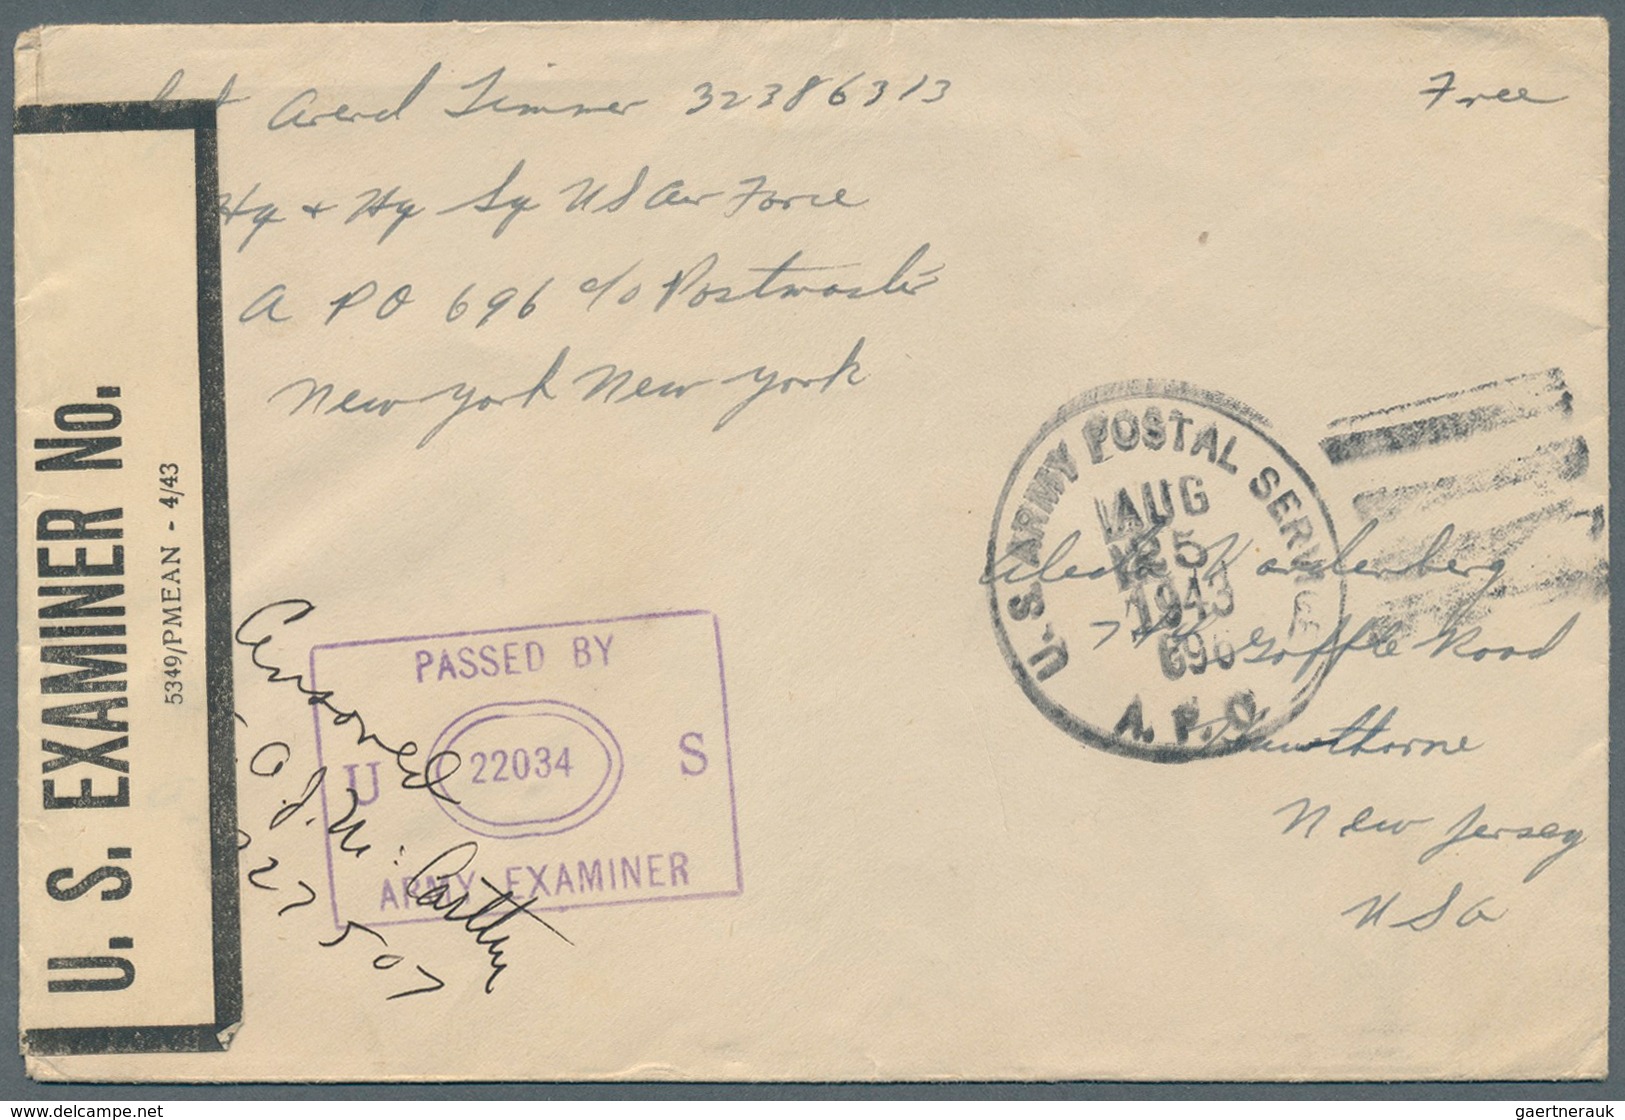 Arend Timmer 32386313
Free
Hq + Hq Sq US Air Force
A PO 696 c/o Postmaster
New York New York
U. S. EXAMINER No.
5349/PMEAN - 4/43
U.S. ARMY POSTAL SERVICE
AUG
25
1943
696
A.P.O.
Goffle Road
Hawthorne
New Jersey
USA
PASSED BY
U 22034 S
ARMY EXAMINER
Censored
O.J. McCarthy
22507
delcampe.net
gaertnerauk